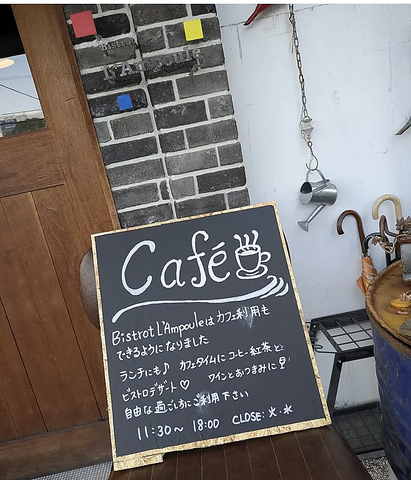 Bistrot
L'Ampoule
Café
Bistrot L'Ampouleはカフェ利用も
できるようになりました
ランチにも♪ カフェタイムにコーヒー紅茶と
ビストロデザート♡ ワインとおつまみに
自由な過ごし方にご利用下さい
11:30〜18:00 CLOSE:火.水